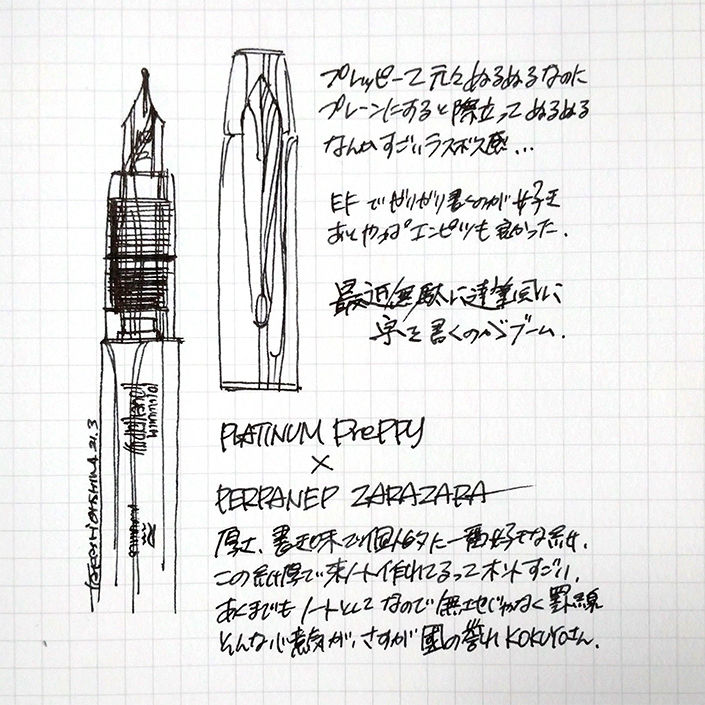 プレッピーて元々ぬるぬるなのに
プレーンにすると際立ってぬるぬる
なんかすごいラスボス感...
EFでガリガリ書くのが好き
あとやっぱエンピツも良かった.
最近無駄に達筆風に
字を書くのがブーム.
PLATINUM PrePPY
×
PERPANEP ZARAZARA
厚さ、書き味で個人的に一番好きな紙.
この紙厚で束ノート作れてるってホントすごい.
あくまでもノートとしてなので無地じゃなく罫線
そんな心意気が、さすが国の誉れ KOKUYOさん.
21.3